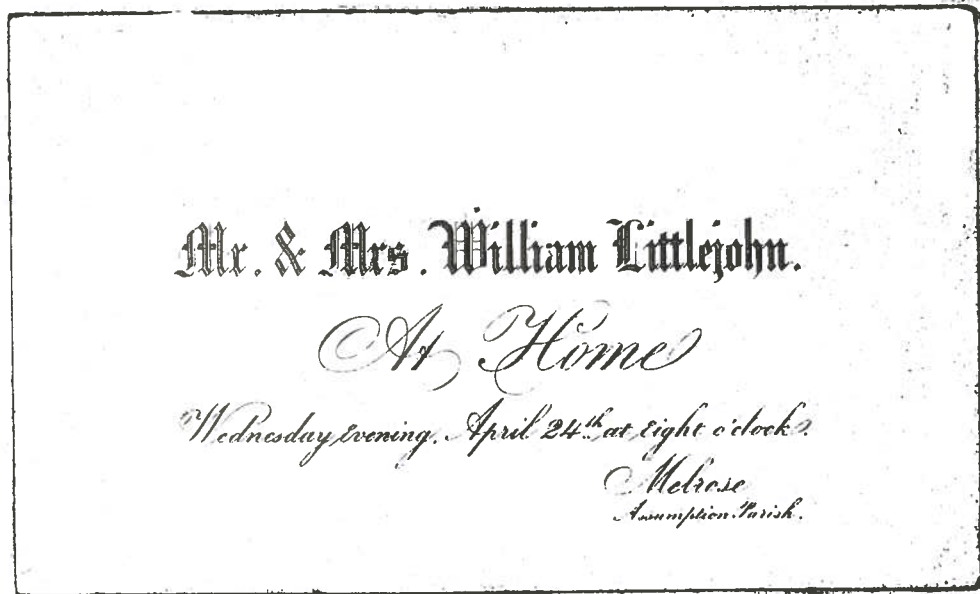 Mr. & Mrs. William Littlejohn.
At Home
Wednesday Evening, April 24th at eight o'clock.
Melrose
Assumption Parish.